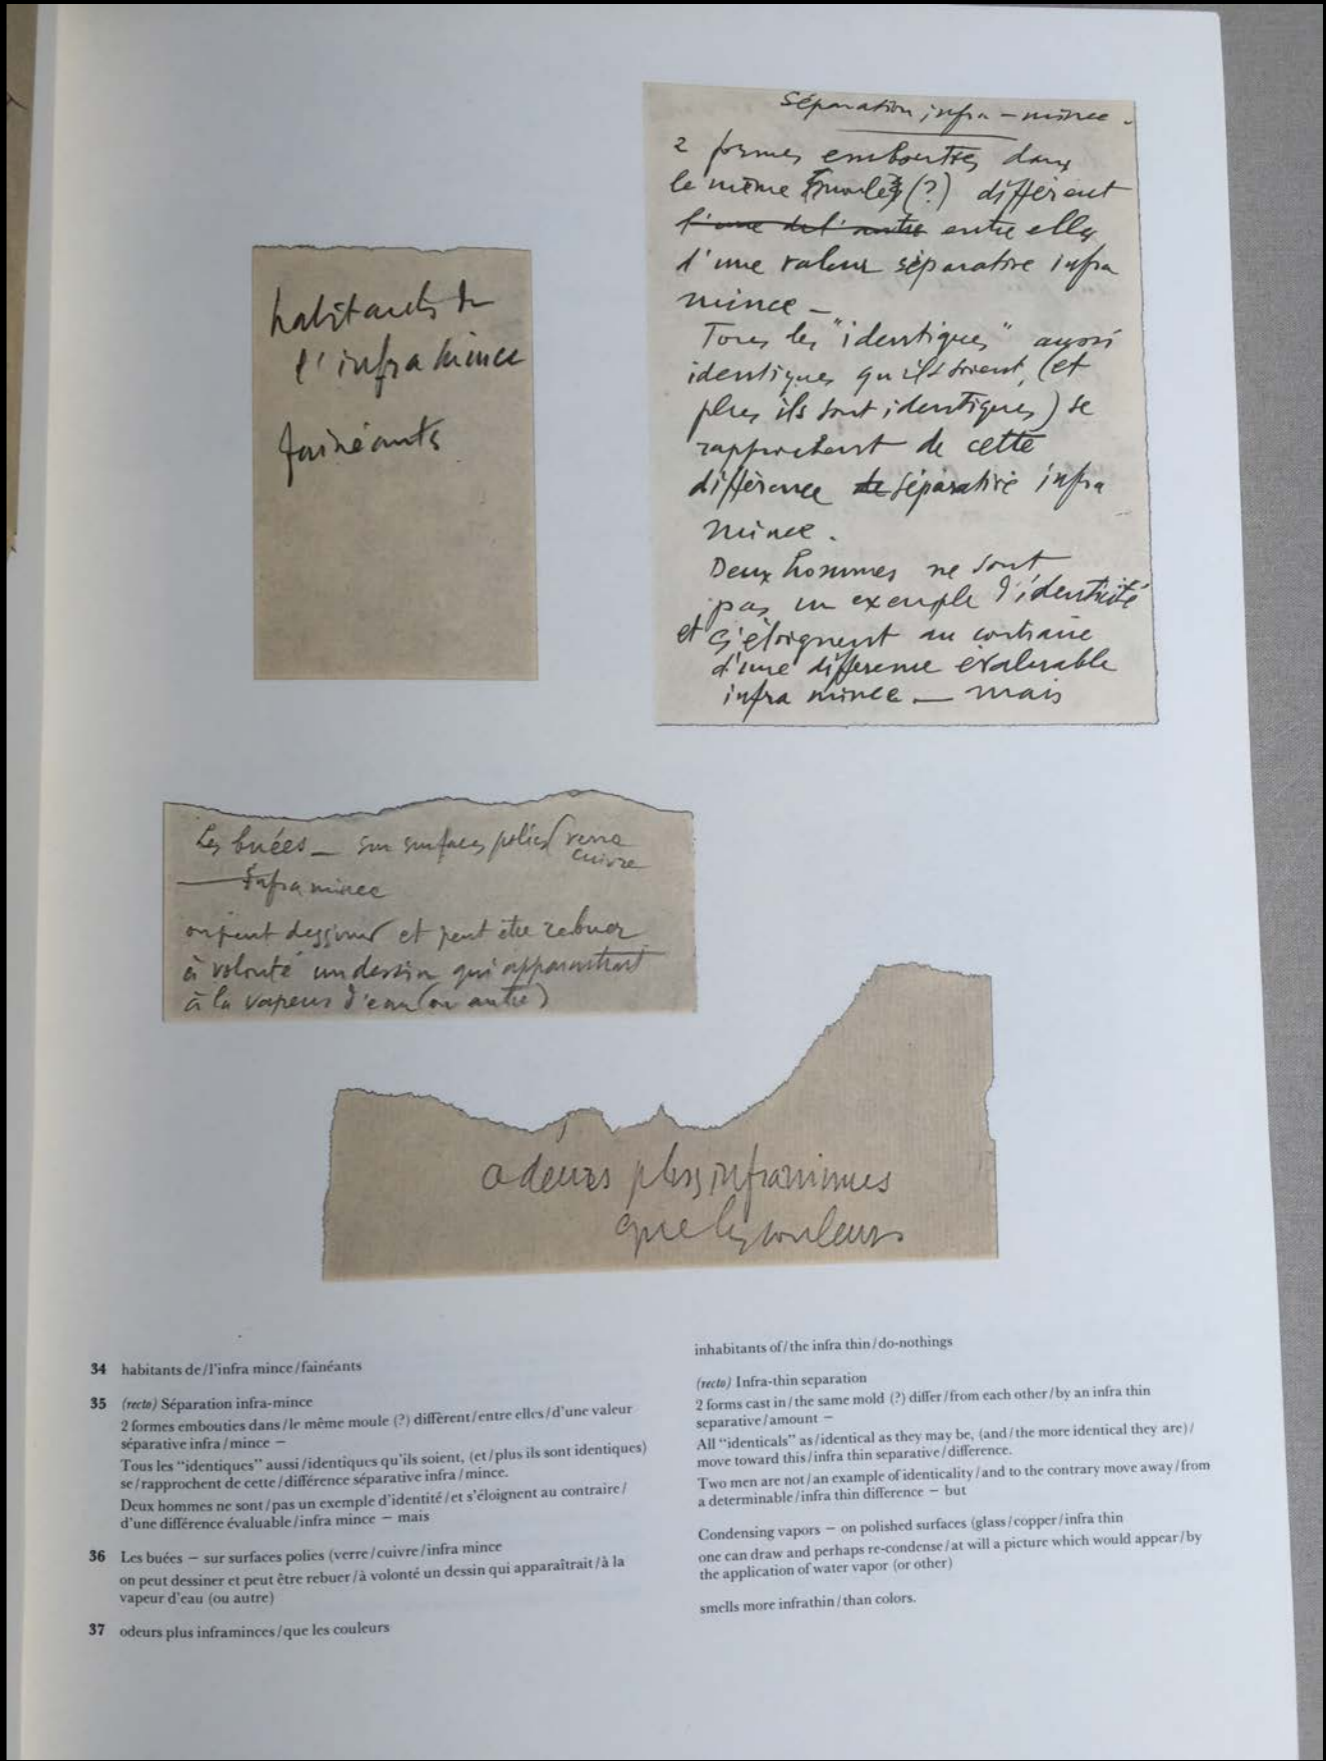 habitants de
l'infra mince
fainéants
Séparation infra-mince.
2 formes embouties dans
le même [moule] (?) diffèrent
l'une de l'autre entre elles
d'une valeur séparative infra
mince –
Tous les "identiques" aussi
identiques qu'ils soient, (et
plus ils sont identiques) se
rapprochent de cette
différence de séparative infra
mince.
Deux hommes ne sont
pas un exemple d'identité
et s'éloignent au contraire
d'une différence évaluable
infra mince – mais
Les buées – sur surfaces polies (verre
cuivre
infra mince
on peut dessiner et peut être rebuer
à volonté un dessin qui apparaîtrait
à la vapeur d'eau (ou autre)
odeurs plus inframinces
que les couleurs
34 habitants de/l'infra mince/fainéants
35 (recto) Séparation infra-mince
2 formes embouties dans/le même moule (?) diffèrent/entre elles/d'une valeur
séparative infra/mince –
Tous les "identiques" aussi/identiques qu'ils soient, (et/plus ils sont identiques)
se/rapprochent de cette/différence séparative infra/mince.
Deux hommes ne sont/pas un exemple d'identité/et s'éloignent au contraire/
d'une différence évaluable/infra mince – mais
36 Les buées – sur surfaces polies (verre/cuivre/infra mince
on peut dessiner et peut être rebuer/à volonté un dessin qui apparaîtrait/à la
vapeur d'eau (ou autre)
37 odeurs plus inframinces/que les couleurs
inhabitants of/the infra thin/do-nothings
(recto) Infra-thin separation
2 forms cast in/the same mold (?) differ/from each other/by an infra thin
separative/amount –
All "identicals" as/identical as they may be, (and/the more identical they are)/
move toward this/infra thin separative/difference.
Two men are not/an example of identicality/and to the contrary move away/from
a determinable/infra thin difference – but
Condensing vapors – on polished surfaces (glass/copper/infra thin
one can draw and perhaps re-condense/at will a picture which would appear/by
the application of water vapor (or other)
smells more infrathin/than colors.